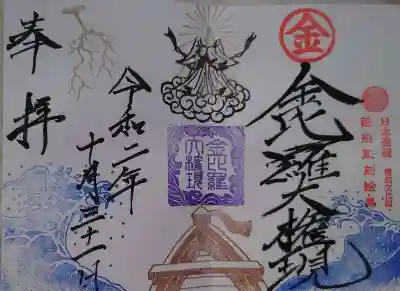 金
金毘羅大権現
金毘羅
大権現
奉拝
令和二年
十月三十一日
日本遺産